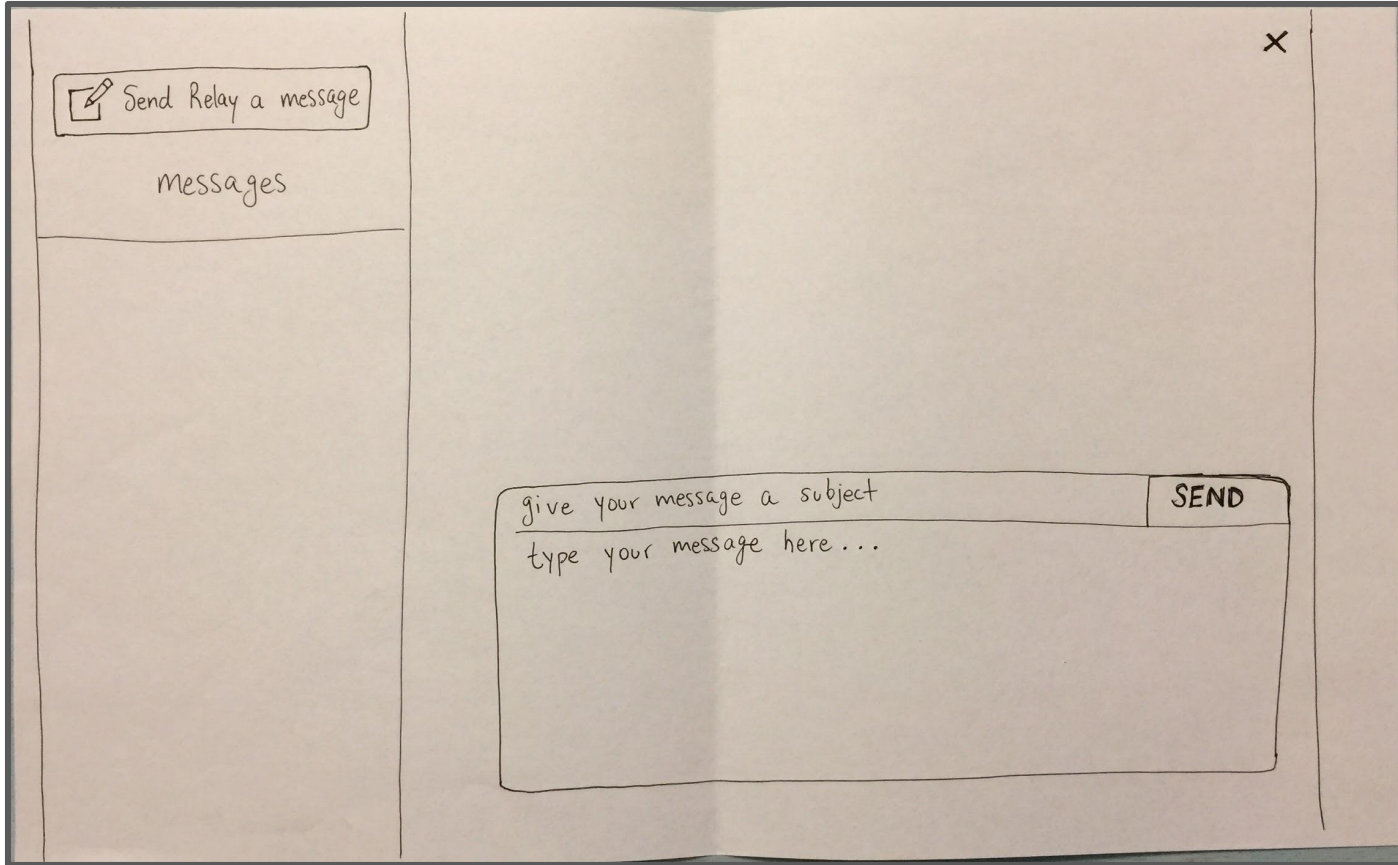 Send Relay a message
messages
×
give your message a subject
SEND
type your message here...